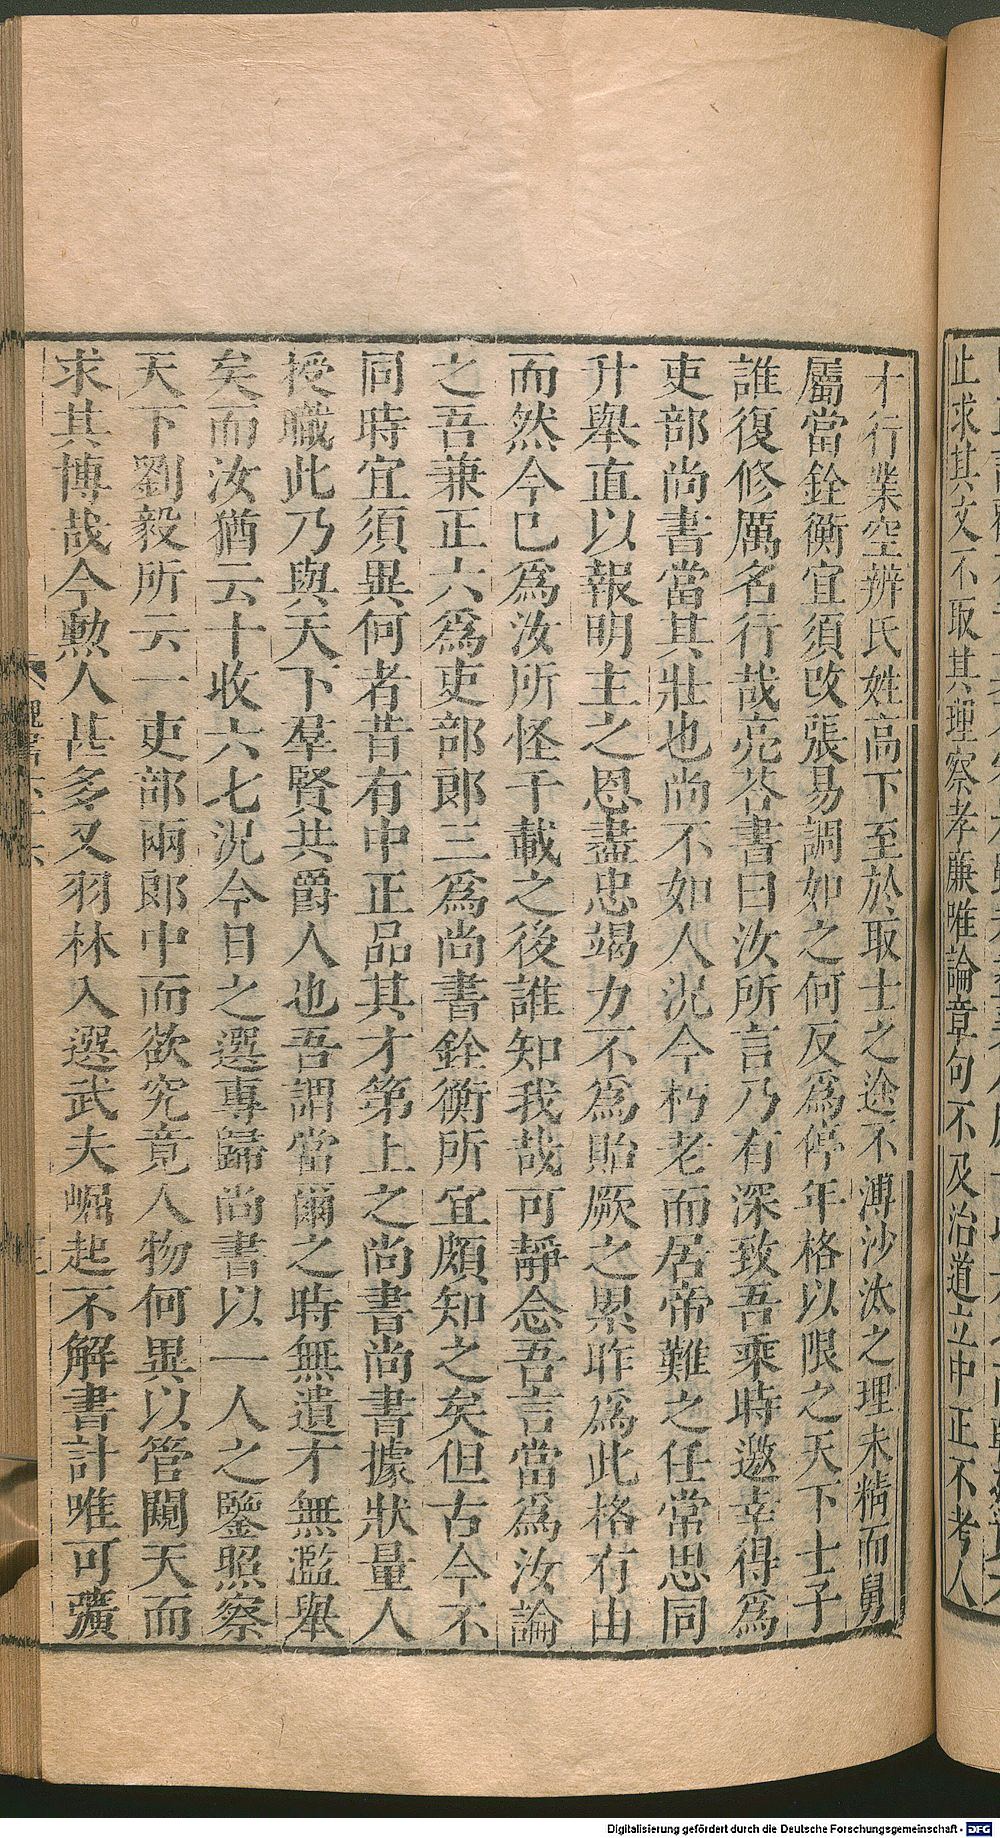 止求其文不取其理察孝廉唯論章句不及治道立中正不考人
才行業空辨氏姓高下至於取士之途不溥沙汰之理未精而舅
屬當銓衡宜須改張易調如之何反爲停年格以限之天下士子
誰復修厲名行哉亮荅書曰汝所言乃有深致吾乘時邀幸得爲
吏部尚書當其壯也尚不如人况今朽老而居帝難之任常思同
升舉直以報明主之恩盡忠竭力不爲貽厥之累昨爲此格有由
而然今已爲汝所怪千載之後誰知我哉可靜念吾言當爲汝論
之吾兼正六爲吏部郎三爲尚書銓衡所宜頗知之矣但古今不
同時宜須異何者昔有中正品其才第上之尚書尚書據狀量人
授職此乃與天下羣賢共爵人也吾謂當爾之時無遺才無濫舉
矣而汝猶云十收六七况今日之選專歸尚書以一人之鑒照察
天下劉毅所云一吏部兩郎中而欲究竟人物何異以管闚天而
求其博哉今勲人甚多又羽林入選武夫崛起不解書計唯可彍
Digitalisierung gefördert durch die Deutsche Forschungsgemeinschaft - DFG